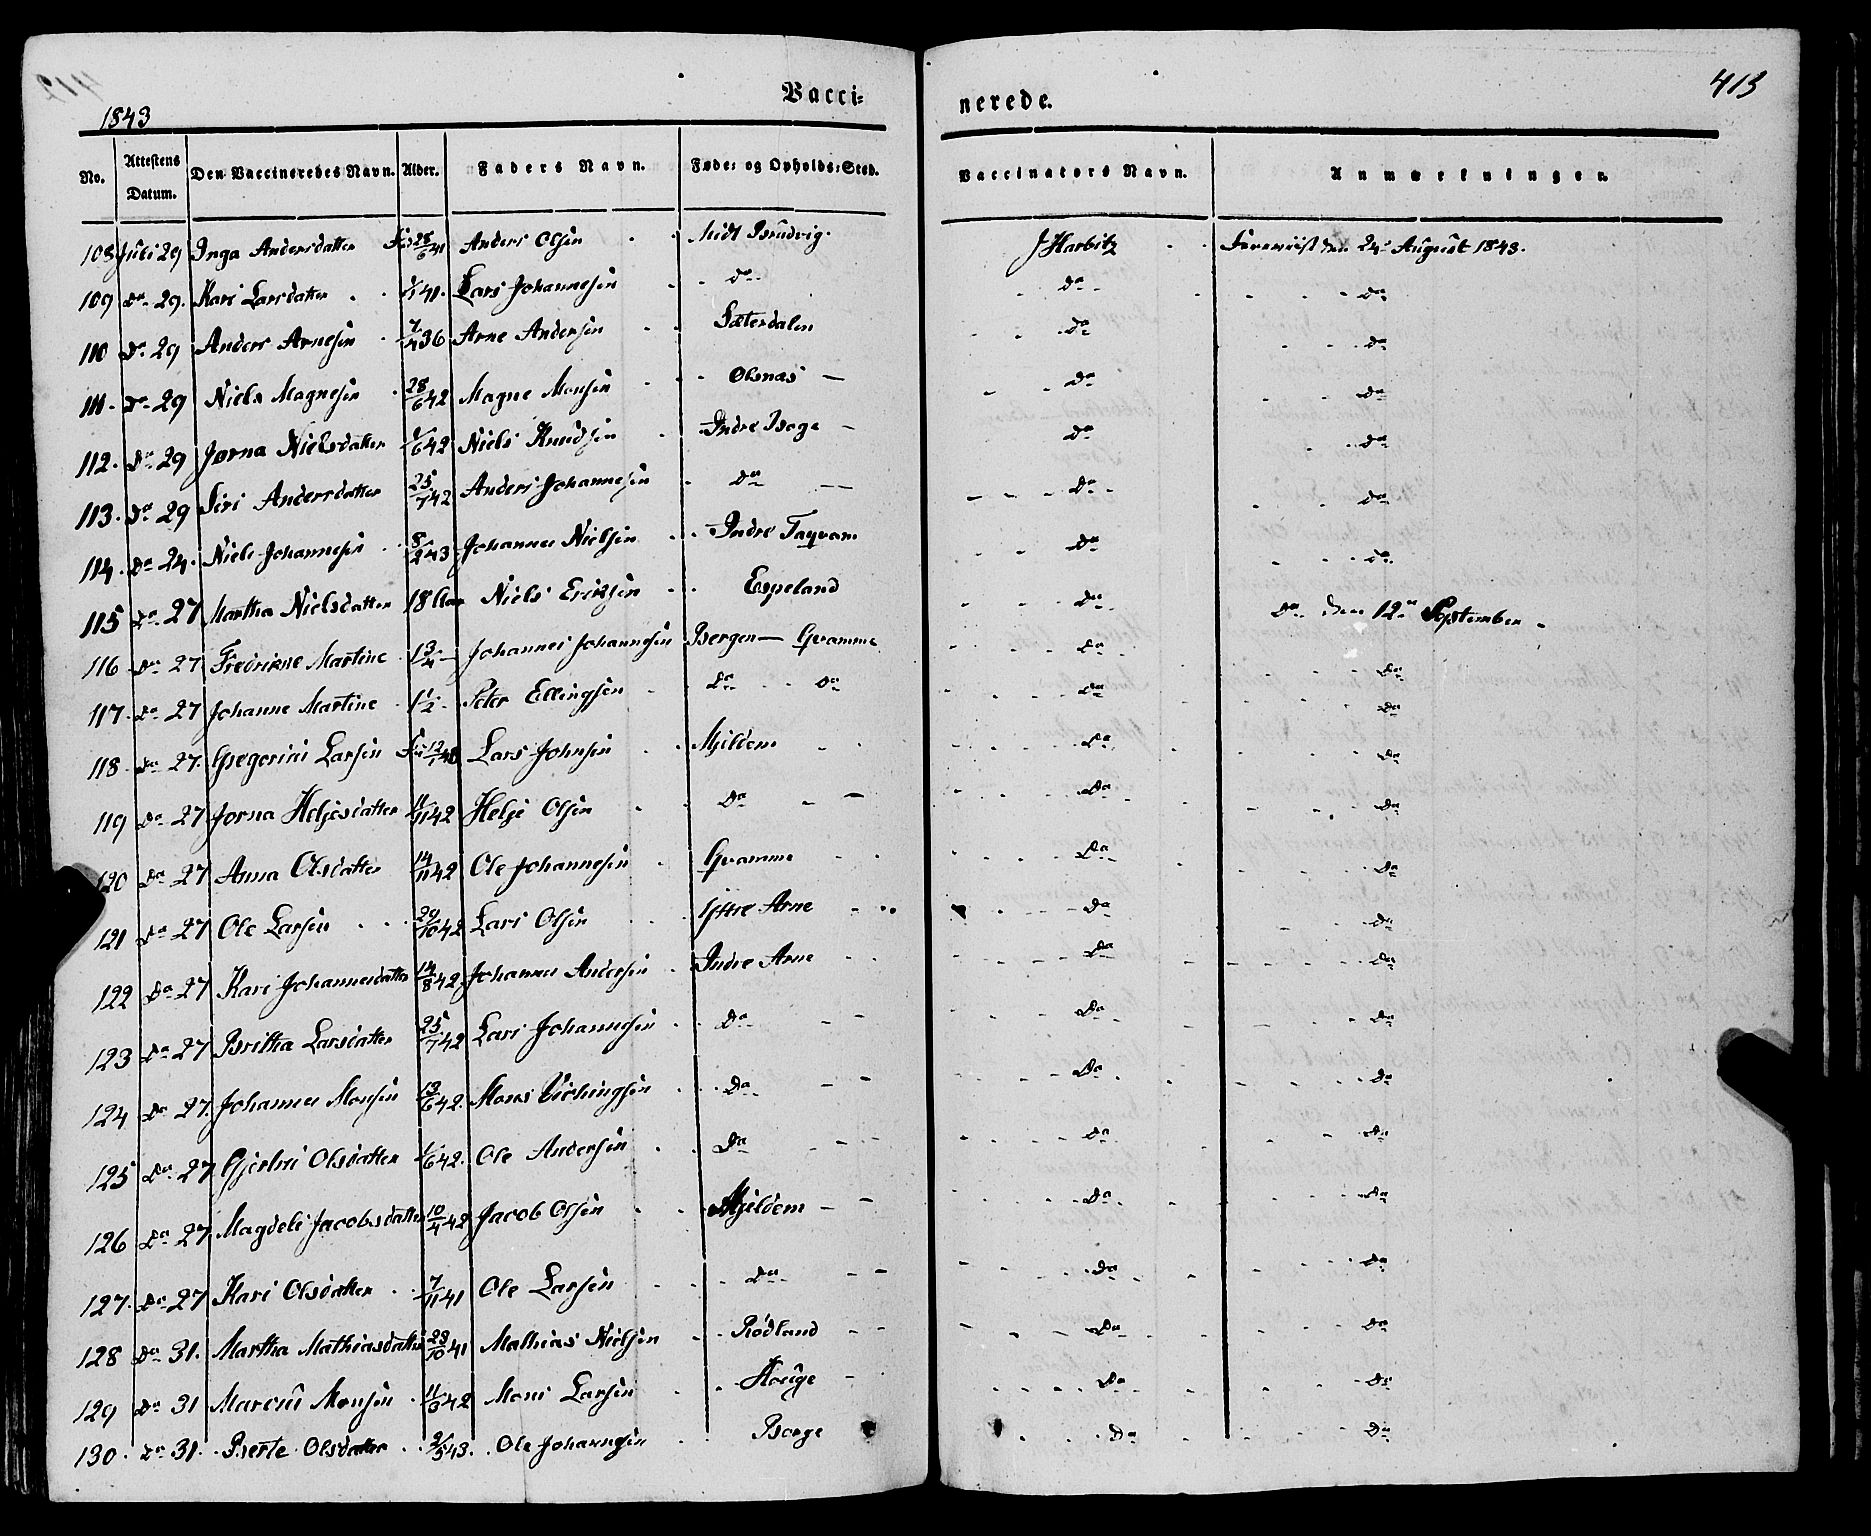 Vacci-
nerede.
413
1843
No. Attestens Datum. Den Vaccineredes Navn. Alder. Faders Navn. Føde- og Opholds-Sted. Vaccinators Navn. Anmærkninger.
108 Juli 29 Inga Andersdatter 28/6 41 Anders Olsen Midt Bradvig. J Harbitz Foreviist den 24 August 1843.
109 Do 29. Kari Larsdatter 41. Lars Johannesen Do Do Do
110 Do 29 Anders Arnesen 7/4 36 Arne Andersen Sæterdalen Do Do
111. Do 29 Niels Magnesen 28/6 42 Magne Monsen Olsnæs Do Do
112. Do 29 Jorna Nielsdatter 1/6 42 Niels Knudsen Indre Borge Do Do
113. Do 29 Siri Andersdatter 25/7 42 Anders Johannesen Do Do Do
114. Do 24. Niels Johannesen 8/2 43 Johannes Nielsen Indre Do Do
115 Do 27 Martha Nielsdatter 18 Niels Eriksen Espeland Do Do den 12te September
116 Do 27 Fredrikne Martine 1 3/4 Johannes Johannesen Bergen Gramme Do Do
117. Do 27 Johanne Martine 1 1/2 Peter Ellingsen Do Do Do Do
118 Do 27. Gregorius Larsen Lars Johnsen Mjeldem Do Do
119 Do 27 Jorna Heljesdatter 11/11 42 Helje Olsen Do Do Do
120 Do 27 Anna Olsdatter 14/11 42 Ole Johannesen Gramme Do Do
121 Do 27 Ole Larsen 29/10 42 Lars Olsen Yttre Arne Do Do
122 Do 27 Kari Johannesdatter 14/8 42 Johannes Andersen Indre Arne Do Do
123 Do 27 Britha Larsdatter 25/7 42 Lars Johannesen Do Do Do
124 Do 27. Johannes Monsen 13/6 42. Mons Vichingsen Do Do Do
125 Do 27 Gjertrui Olsdatter 1/6 42. Ole Andersen Do Do Do
126 Do 27 Magdeli Jacobsdatter 10/4 42 Jacob Olsen Mjeldem Do Do
127. Do 27 Kari Olsdatter 7/11 41 Ole Larsen Do Do Do
128 Do 31. Martha Mathiasdatter 23/10 41 Mathias Nielsen Rödland Do Do
129 Do 31 Marcus Monsen 11/6 42 Mons Larsen Houge Do Do
130. Do 31. Berte Olsdatter 2/5 43. Ole Johannesen Borge Do Do